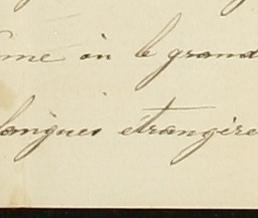 me où le grand
langues étrangère